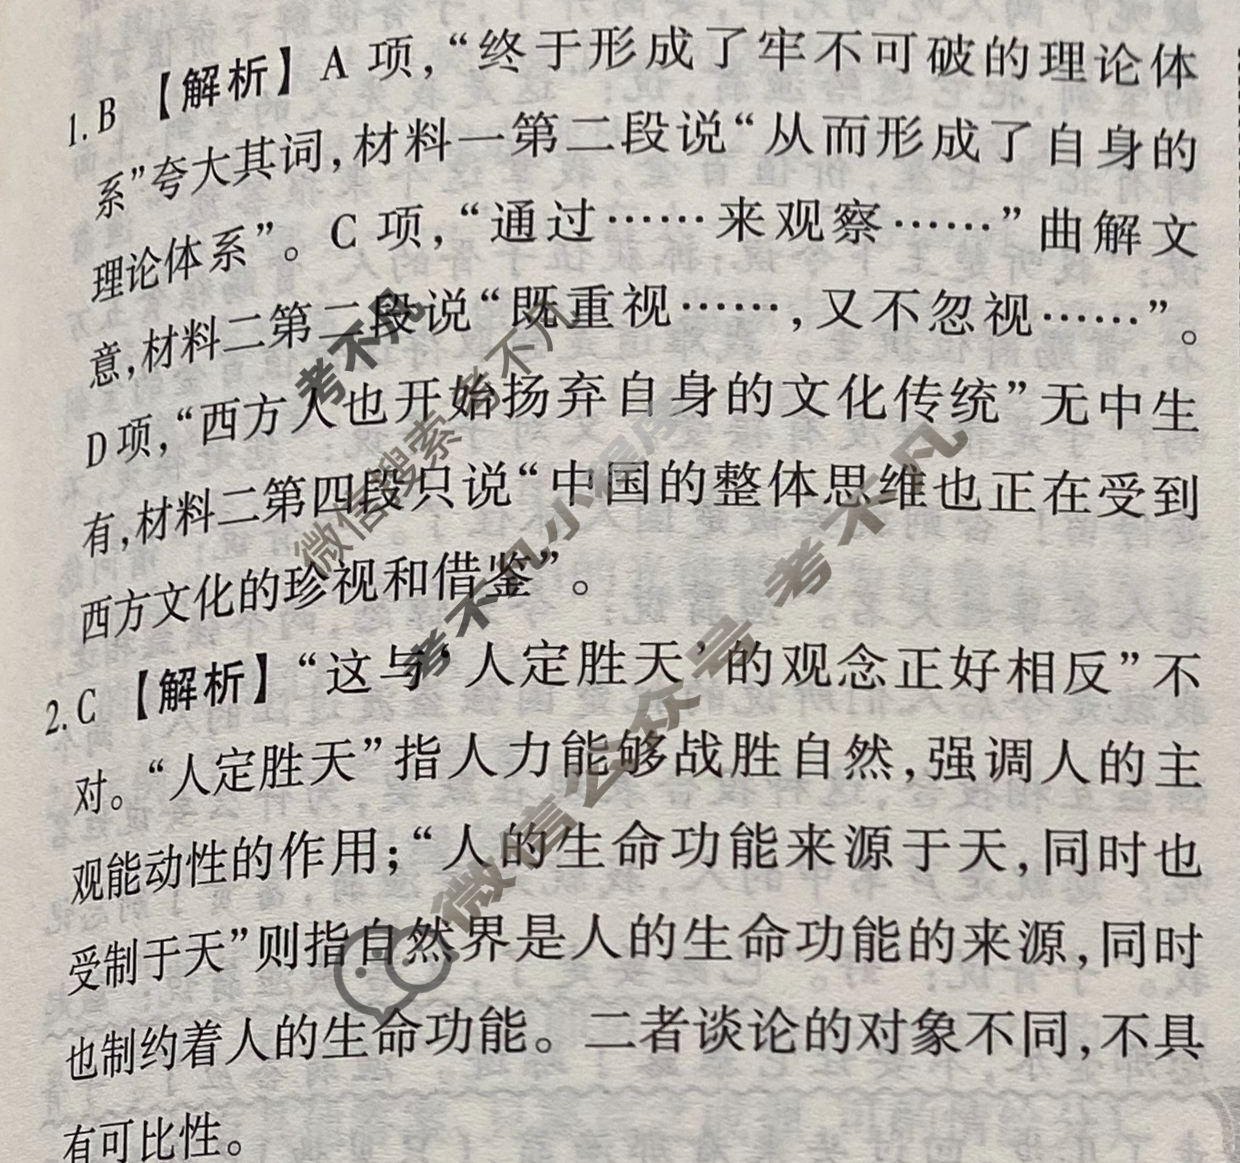 1. B 【解析】A 项，“终于形成了牢不可破的理论体
系”夸大其词，材料一第二段说“从而形成了自身的
理论体系”。C 项，“通过……来观察……”曲解文
意，材料二第二段说“既重视……，又不忽视……”。
D 项，“西方人也开始扬弃自身的文化传统”无中生
有，材料二第四段只说“中国的整体思维也正在受到
西方文化的珍视和借鉴”。
2. C 【解析】“这与‘人定胜天’的观念正好相反”不
对。“人定胜天”指人力能够战胜自然，强调人的主
观能动性的作用；“人的生命功能来源于天，同时也
受制于天”则指自然界是人的生命功能的来源，同时
也制约着人的生命功能。二者谈论的对象不同，不具
有可比性。
考不凡
微信搜索 考不凡
考不凡小程序
微信公众号 考不凡